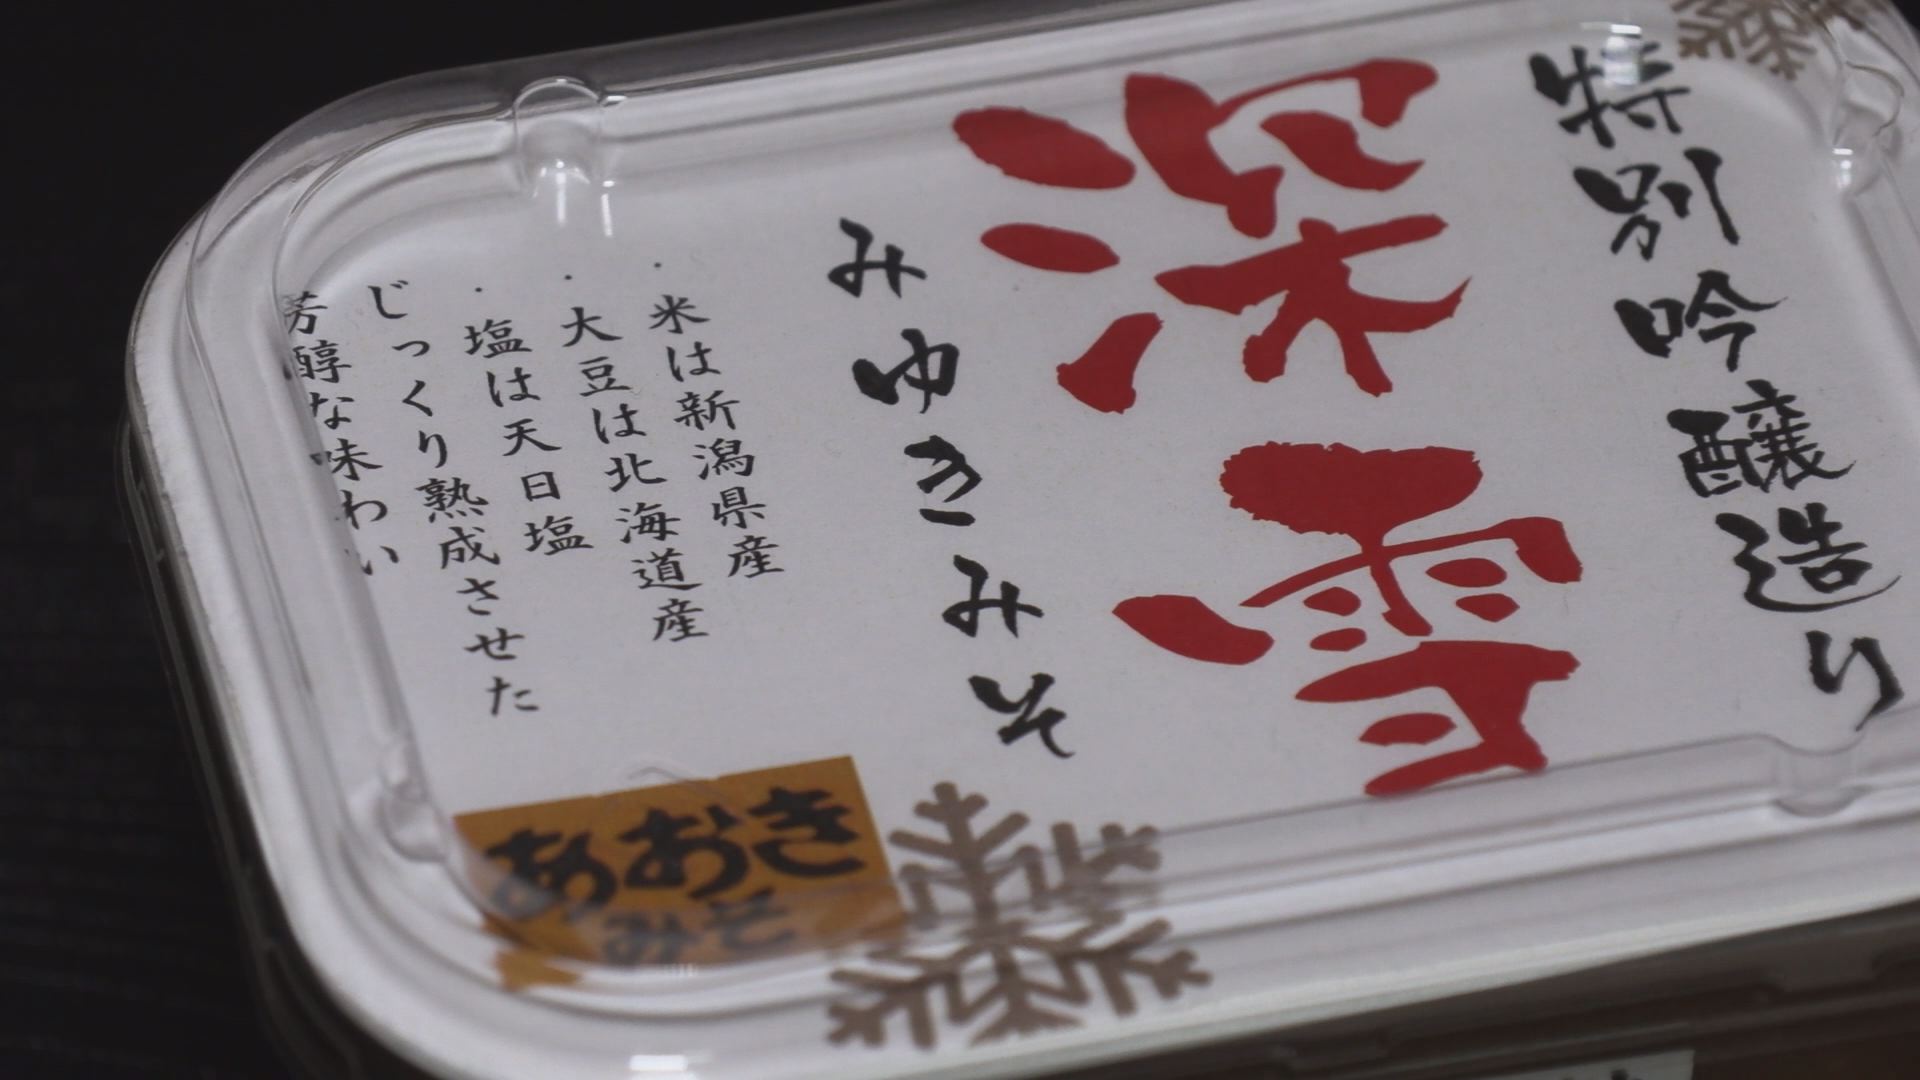 特別吟醸造り
深雪
みゆきみそ
・米は新潟県産
・大豆は北海道産
・塩は天日塩
じっくり熟成させた
芳醇な味わい
あおき
みそ